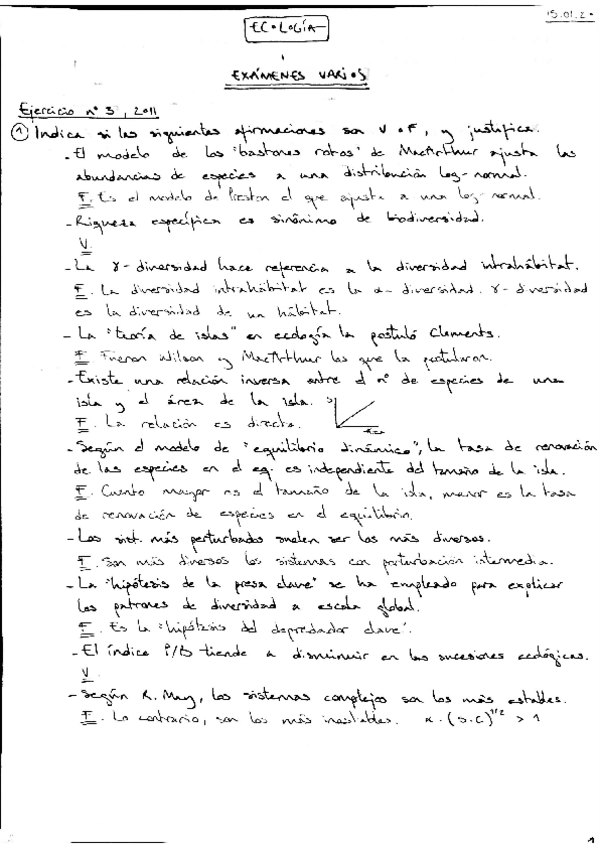 15.01.2
ECOLOGÍA
EXÁMENES VARIOS
Ejercicio nº 3, 2011
① Indica si las siguientes afirmaciones son V o F, y justifica.
- El modelo de los "bastones rotos" de MacArthur ajusta las
abundancias de especies a una distribución log-normal.
F. Es el modelo de Preston el que ajusta a una log-normal.
- Riqueza específica es sinónimo de biodiversidad.
V.
- La γ-diversidad hace referencia a la diversidad intrahábitat.
F. La diversidad intrahábitat es la α-diversidad. γ-diversidad
es la diversidad de un hábitat.
- La "teoría de islas" en ecología la postuló Clements.
F. Fueron Wilson y MacArthur los que la postularon.
- Existe una relación inversa entre el nº de especies de una
isla y el área de la isla. S
F. La relación es directa.
- Según el modelo de "equilibrio dinámico", la tasa de renovación
de las especies en el eq. es independiente del tamaño de la isla.
F. Cuanto mayor es el tamaño de la isla, menor es la tasa
de renovación de especies en el equilibrio.
- Los sist. más perturbados suelen ser los más diversos.
F. Son más diversos los sistemas con perturbación intermedia.
- La "hipótesis de la presa clave" se ha empleado para explicar
los patrones de diversidad a escala global.
F. Es la "hipótesis del depredador clave".
- El índice P/B tiende a disminuir en las sucesiones ecológicas.
V.
- Según R. May, los sistemas complejos son los más estables.
F. Lo contrario, son los más inestables. α·(S.C)^1/2 > 1
1